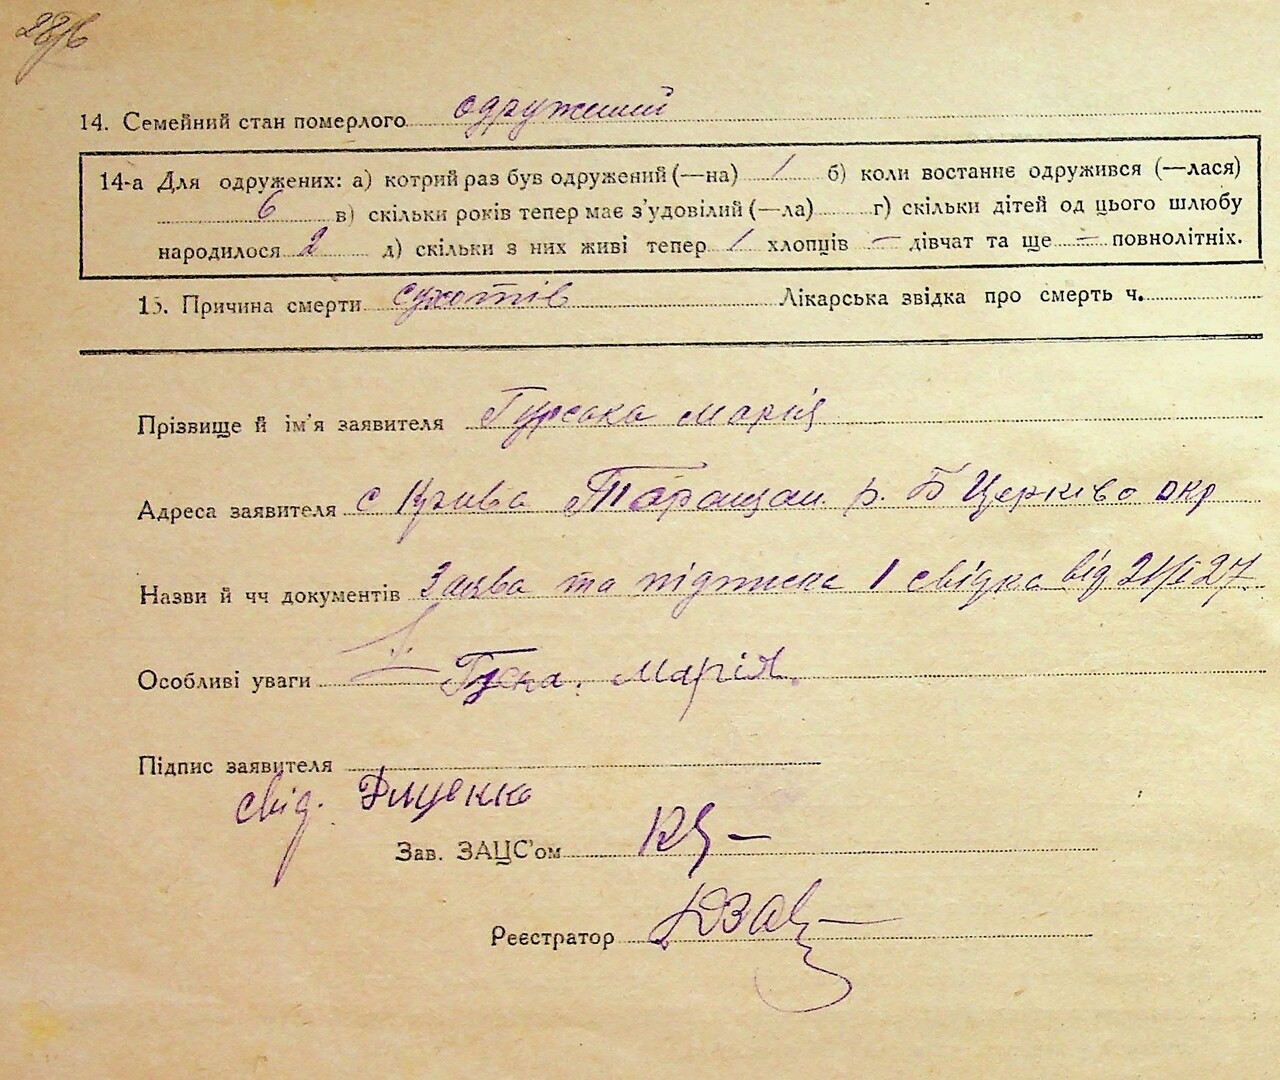 28/6
14. Семейний стан померлого одружений
14-а Для одружених: а) котрий раз був одружений (—на) 1 б) коли востаннє одружився (—лася)
6 в) скільки років тепер має з'удовілий (—ла) г) скільки дітей од цього шлюбу
народилося 2 д) скільки з них живі тепер 1 хлопців — дівчат та ще — повнолітніх.
15. Причина смерти сухотів Лікарська звідка про смерть ч.
Прізвище й ім'я заявителя Гурська Марія
Адреса заявителя с Крива Таращан. р. Б Церківо окр
Назви й чч документів Заява та підписка 1 свідка від 27
Особливі уваги Марія.
Підпис заявителя
свід. Диценко
Зав. ЗАЦС'ом
Реєстратор